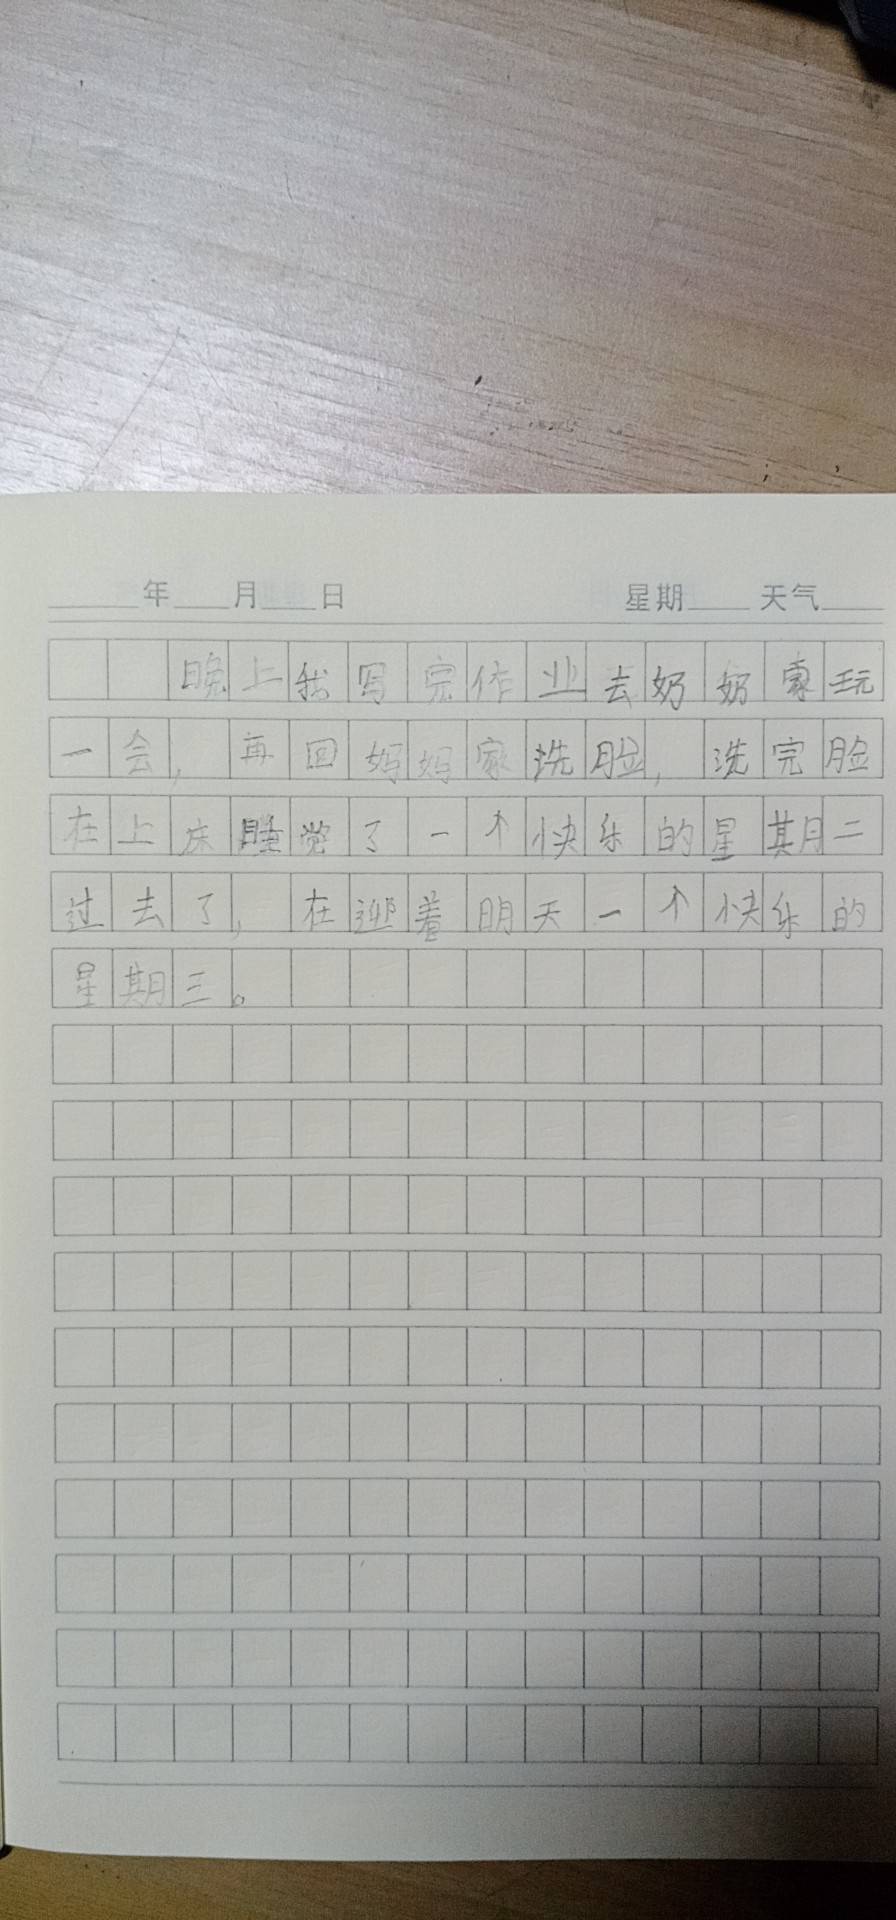 年 月 日 星期 天气
晚上我写完作业去奶奶家玩
一会，再回妈妈家洗脸，洗完脸
在上床睡觉了一个快乐的星期二
过去了，在迎着明天一个快乐的
星期三。